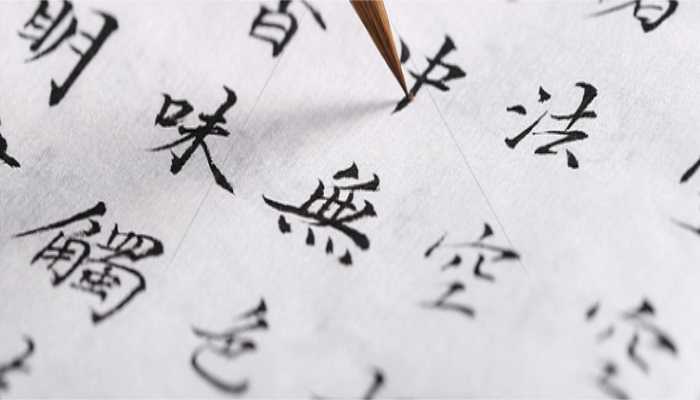 空
法空
中無色
香味觸
明